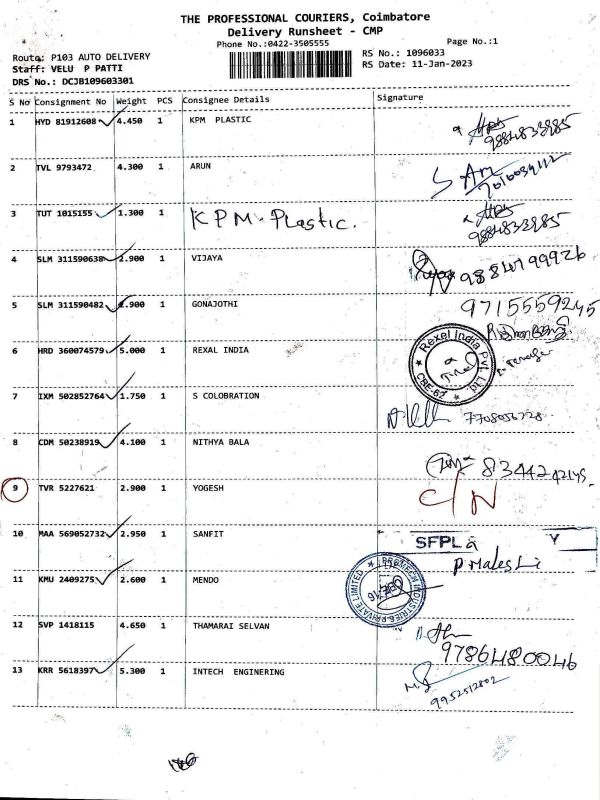 THE PROFESSIONAL COURIERS, Coimbatore
Delivery Runsheet - CMP
Phone No.:0422-3505555 Page No.:1
Route: P103 AUTO DELIVERY RS No.: 1096033
Staff: VELU P PATTI RS Date: 11-Jan-2023
DRS No.: DCJB109603301
S No Consignment No Weight PCS Consignee Details Signature
1 HYD 81912608 4.450 1 KPM PLASTIC 9884833985
2 TVL 9793472 4.300 1 ARUN
3 TUT 1015155 1.300 1 KPM. Plastic. 9884833985
4 SLM 311590638 2.900 1 VIJAYA 9884799926
5 SLM 311590482 .900 1 GONAJOTHI 9715559245
6 HRD 360074579 5.000 1 REXAL INDIA Rexel India Pvt. Ltd. CBE-67
7 IXM 502852764 1.750 1 S COLOBRATION 7708056728
8 CDM 50238919 4.100 1 NITHYA BALA
9 TVR 5227621 2.900 1 YOGESH C/N
10 MAA 569052732 2.950 1 SANFIT SFPL Y
11 KMU 2409275 2.600 1 MENDO INDUSTRIES PRIVATE LIMITED
12 SVP 1418115 4.650 1 THAMARAI SELVAN 9786480046
13 KRR 5618397 5.300 1 INTECH ENGINERING 9952512802